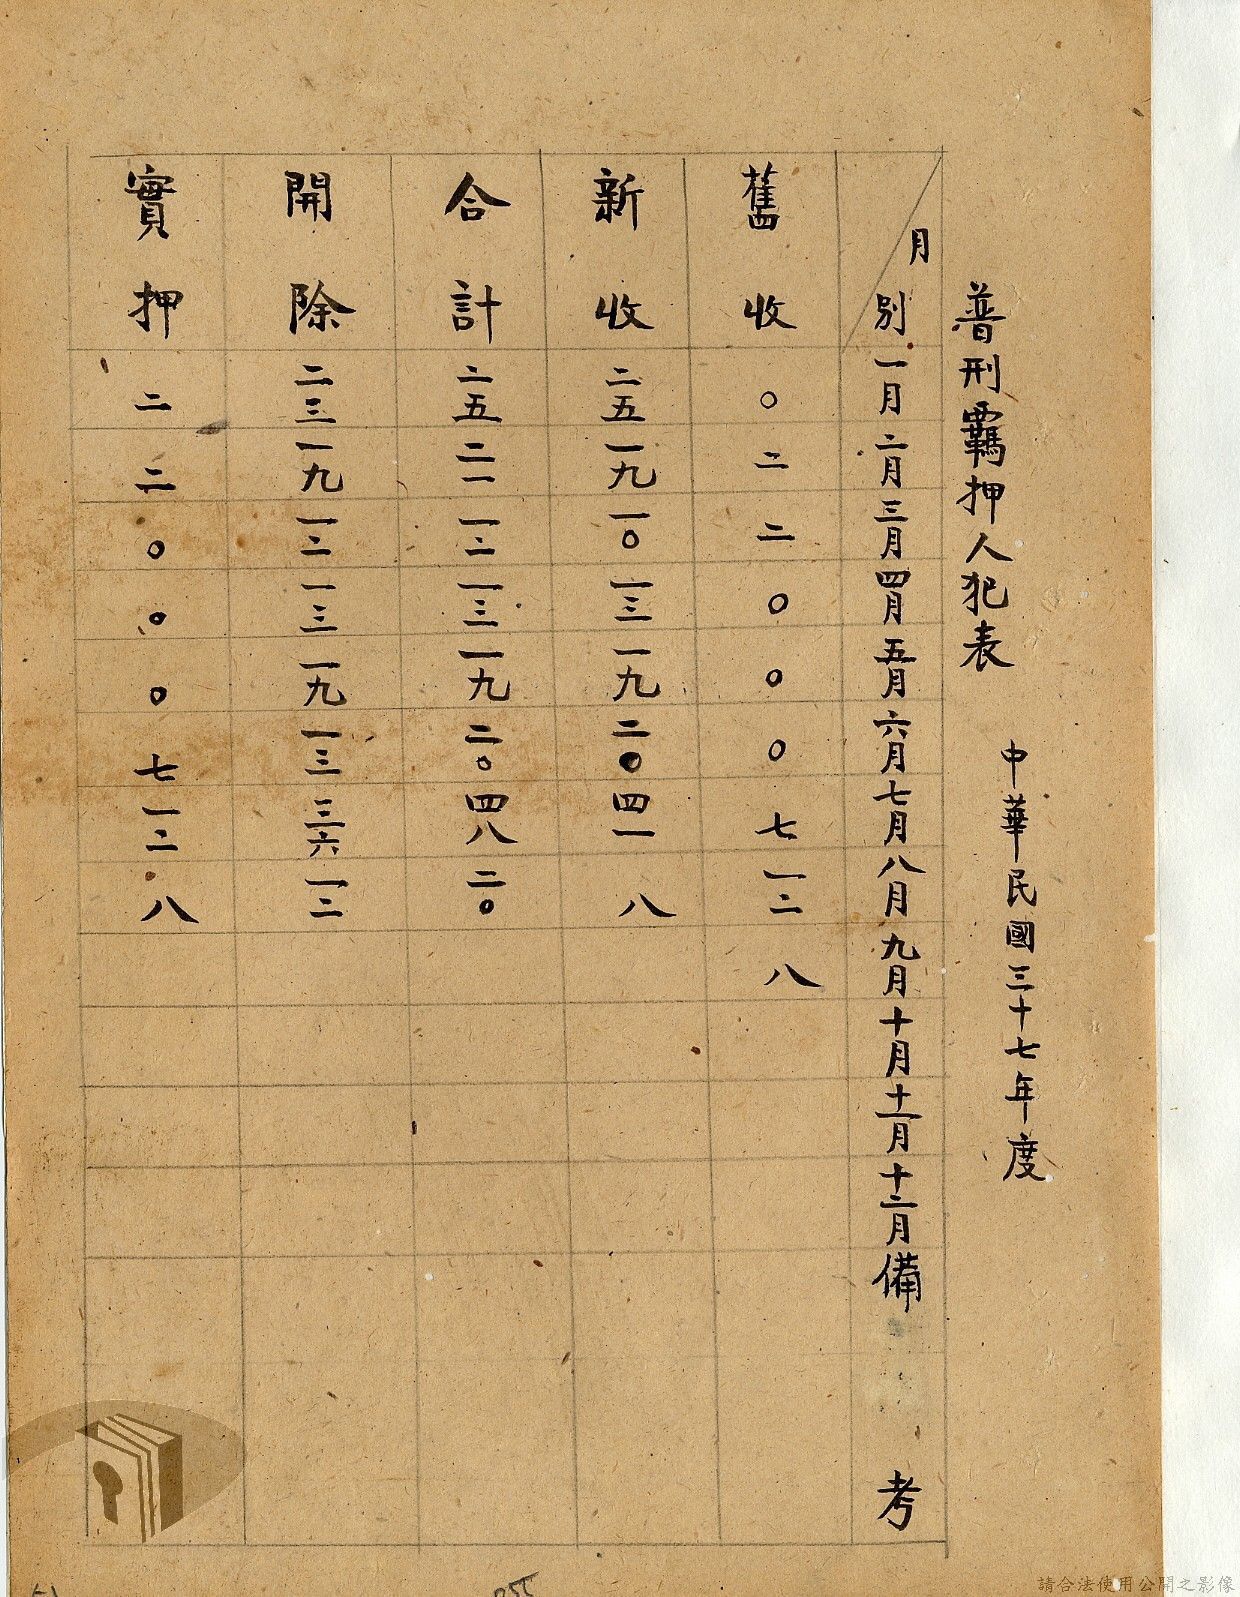 普刑羈押人犯表
中華民國三十七年度
月別 一月 二月 三月 四月 五月 六月 七月 八月 九月 十月 十一月 十二月 備考
舊收 〇 二 二 〇 〇 〇 七 一二 八
新收 二五 一九 一〇 一三 一九 二〇 四一 八
合計 二五 二一 一二 一三 一九 二〇 四八 二〇
開除 二三 一九 一二 一三 一九 一三 三六 一二
實押 二 二 〇 〇 〇 七 一二 八
請合法使用公開之影像